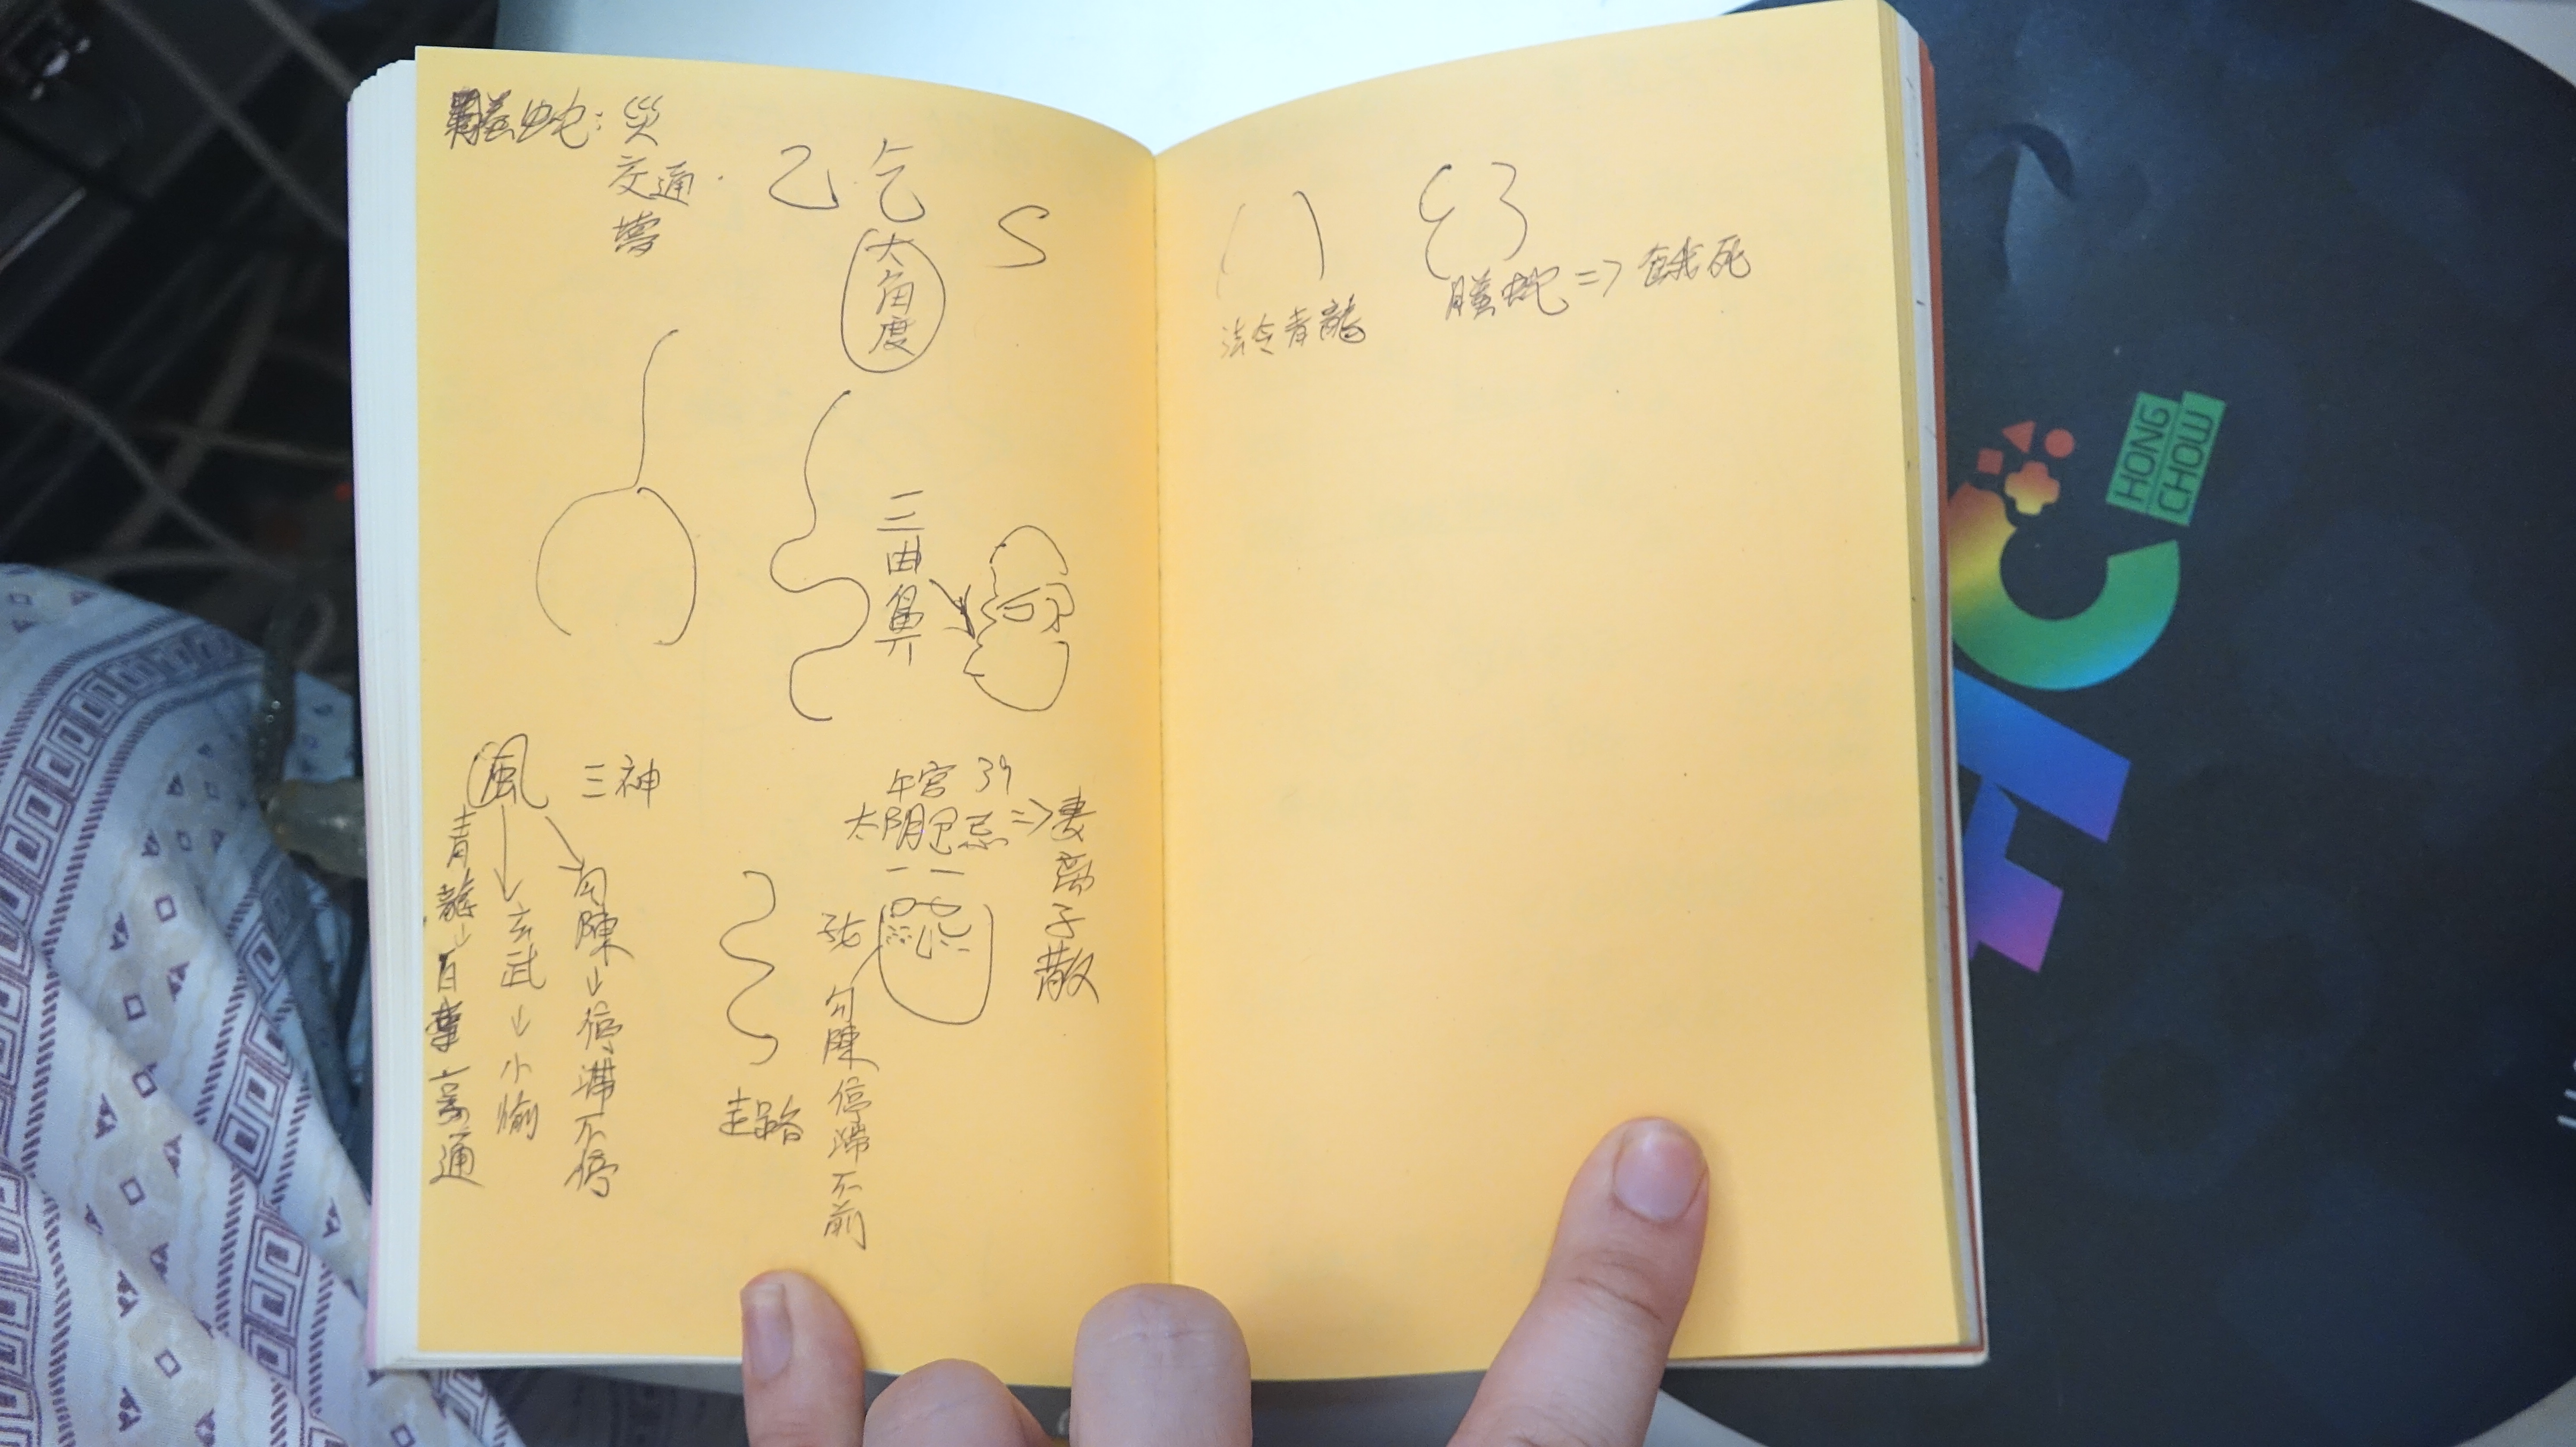 螣蛇：災
交通
夢
乙 乞 S
大角度
三曲鼻
風 三神
青龍→百事亨通
玄武→小偷
勾陳→停滯不停
走路
午宮 39
太陰巳忌=>妻離子散
勾陳停滯不前
法令青龍
螣蛇=>餓死
HONG
CHOW